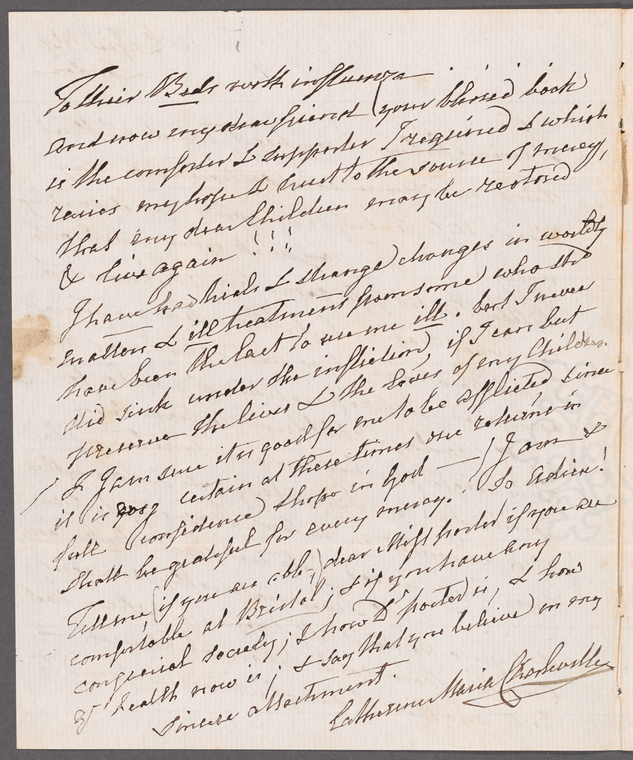 To their Beds with influenza
and now my dear friend (your blessed book
is the comforter & supporter I required & which
raises my hope & trust to the source of mercy,
that my dear Children may be restored
& live again !!!
I have had trials & strange changes in worldly
matters & ill treatment from some who shd
have been the last to use me ill. but I never
did sink under the infliction, if I can but
preserve the lives & the loves of my Children
& I am sure it is good for me to be afflicted since
it is certain at these times one returns in
full confidence & hope in God — I am &
shall be grateful for every mercy. So Adieu!
Tell me (if you are able,) dear Miss Porter if you are
comfortable at Bristol; & if you have any
congenial society; & how Dr Porter is, & how
yr health now is; & say that you believe in my
sincere attachment.
Catherine Maria Charleville